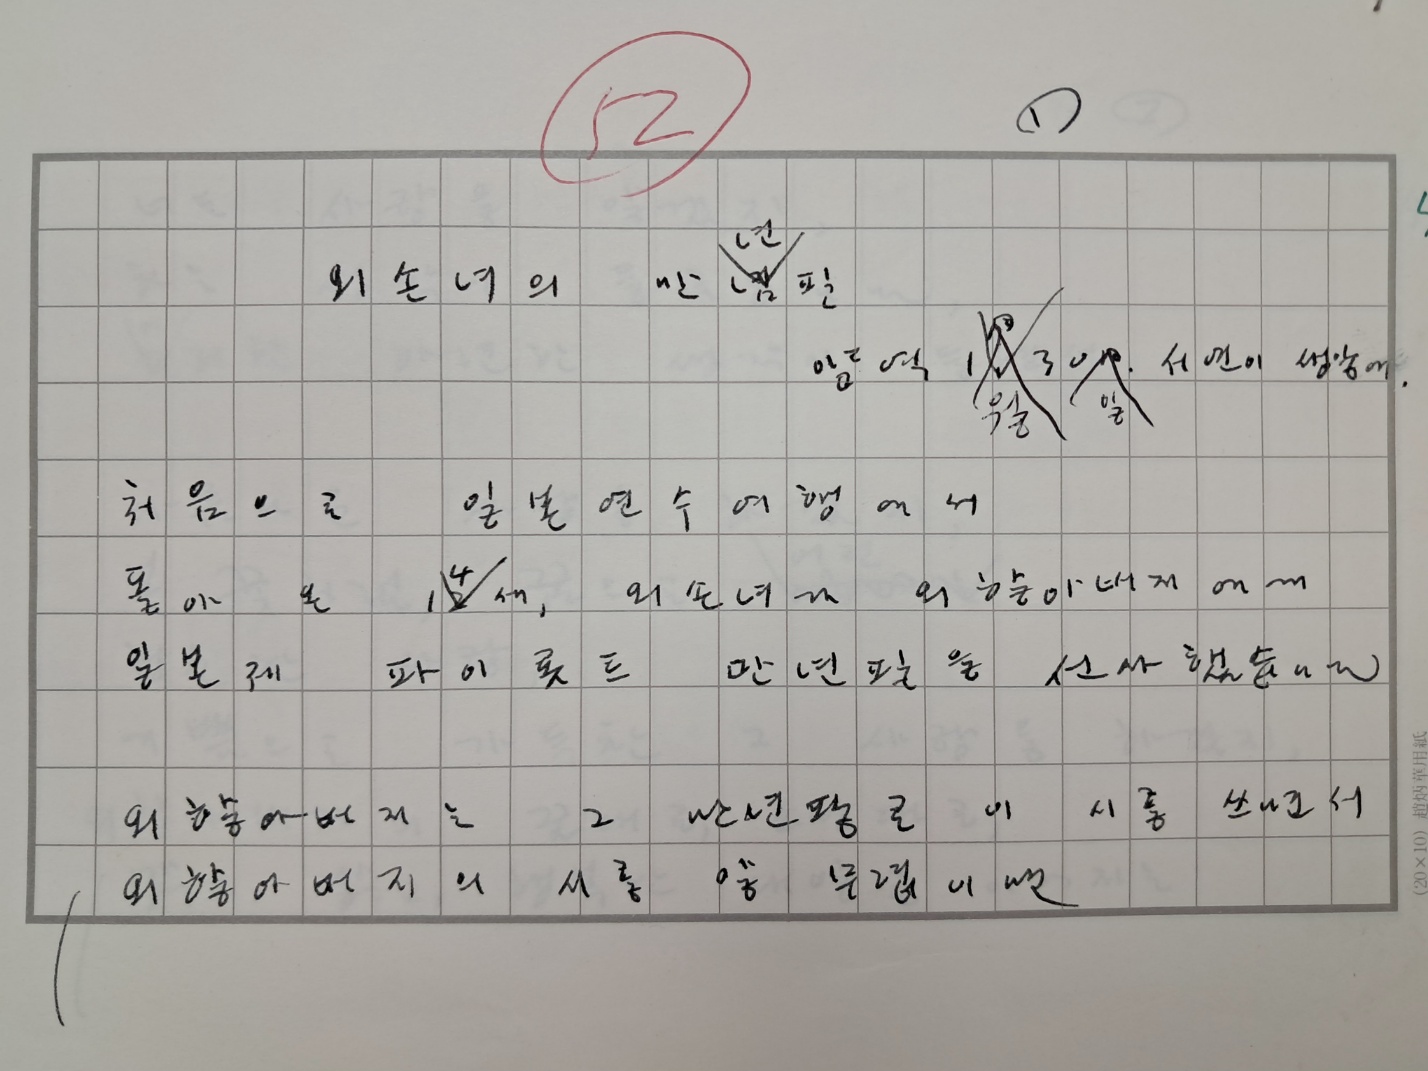 52
1)
외손녀의 만년필
음력 1월 30일. 서연이 생일에.
처음으로 일본연수여행에서
돌아온 14세, 외손녀가 외할아버지에게
일본제 파이롯트 만년필을 선사했습니다
외할아버지는 그 만년필로 이 시를 쓰면서
외할아버지의 시를 쓸 무렵이면
(20×10) 趙炳華用紙